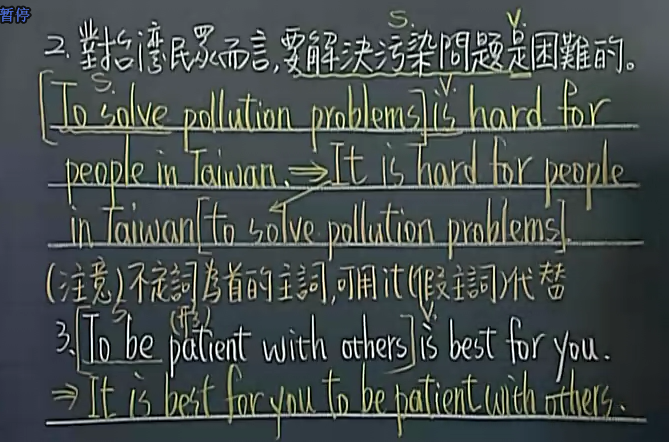 暫停
S. V.
2. 對台湾民眾而言,要解決污染問題是困難的。
S. V.
[To solve pollution problems] is hard for
people in Taiwan. ⇒ It is hard for people
in Taiwan [to solve pollution problems].
(注意) 不定詞為首的主詞,可用it(假主詞)代替
S. (形) V.
3. [To be patient with others] is best for you.
⇒ It is best for you to be patient with others.